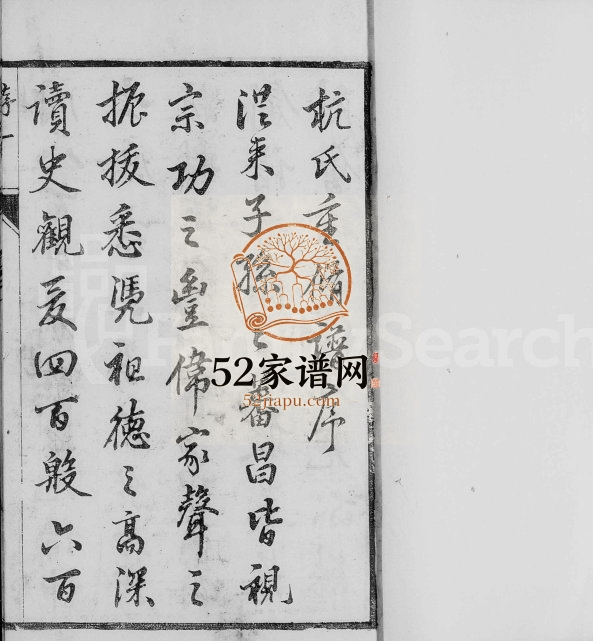 杭氏重修譜序
從来子孫之蕃昌皆視
宗功之豐偉家聲之
振拔悉凭祖德之高深
讀史觀爰四百殷六百
序一
52家谱网
52jiapu.com
FamilySearch